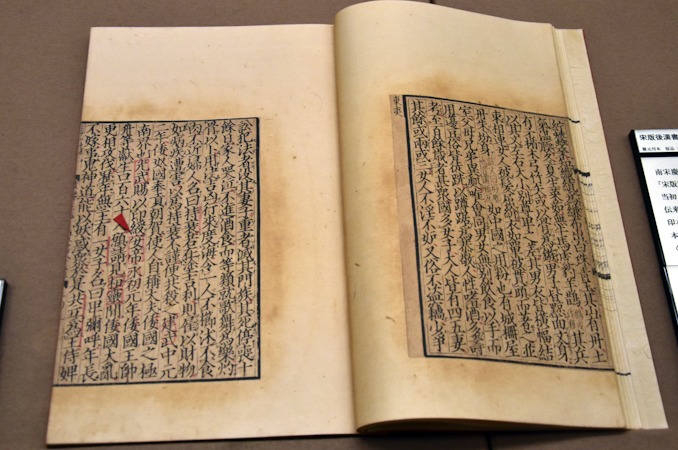 其山有丹土
氣溫腝冬夏生菜茹無牛馬虎豹羊鵲其兵
有矛楯木弓竹矢或以骨為鏃男子皆黥面文身
以其文左右大小別尊卑之差其男衣皆橫幅結
束相連女人被髮屈紒衣如單被貫頭而著之並以
丹朱坋身如中國之用粉也有城柵屋
室父母兄弟異處唯會同男女無別飲食以手而
用籩豆俗皆徒跣以蹲踞為恭敬人性嗜酒多壽
考至百餘歲者甚眾國多女子大人皆有四五妻
其餘或兩或三女人不淫不妒又俗不盜竊少爭
訟犯法者沒其妻子重者滅其門族其死停喪十
餘日家人哭泣不進酒食而等類就歌舞為樂灼
骨以卜用決吉凶行來度海令一人不櫛沐不食
肉不近婦人名曰持衰若在塗吉利則雇以財物
如病疾遭害以為持衰不謹便共殺之建武中元
二年倭奴國奉貢朝賀使人自稱大夫倭國之極
南界也光武賜以印綬安帝永初元年倭國王帥
升等獻生口百六十人願請見桓靈閒倭國大亂
更相攻伐歷年無主有一女子名曰卑彌呼年長
不嫁事鬼神道能以妖惑眾於是共立為王侍婢
宋版後漢書
南宋慶
『宋版
当初
伝来
印
本